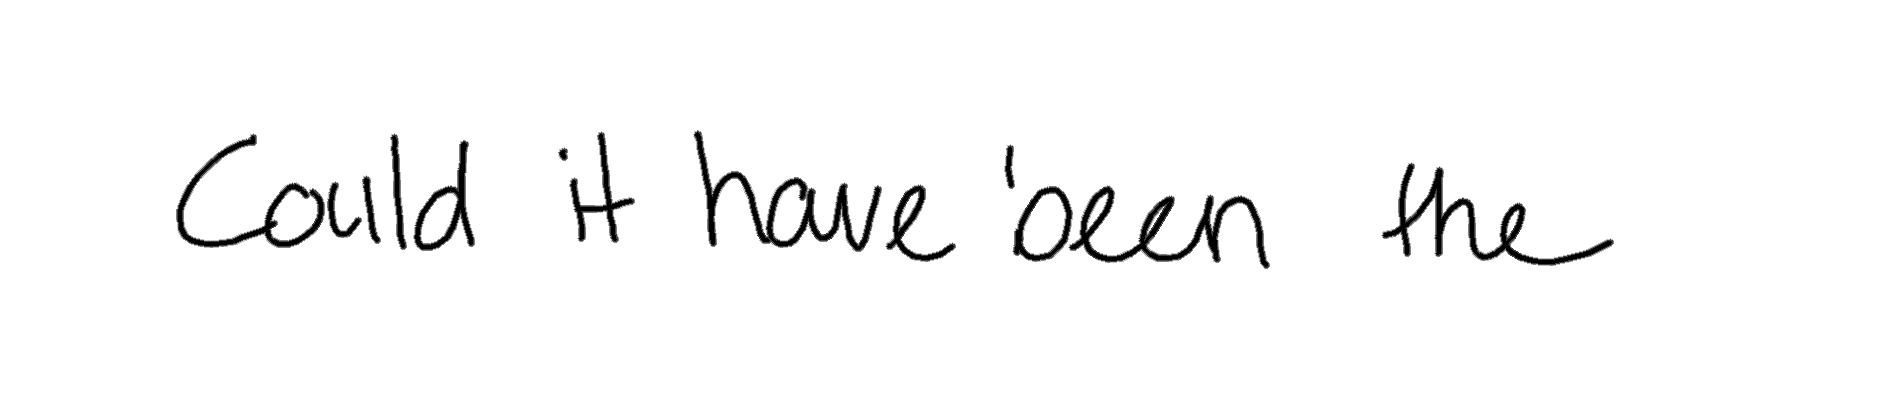 Could it have been the